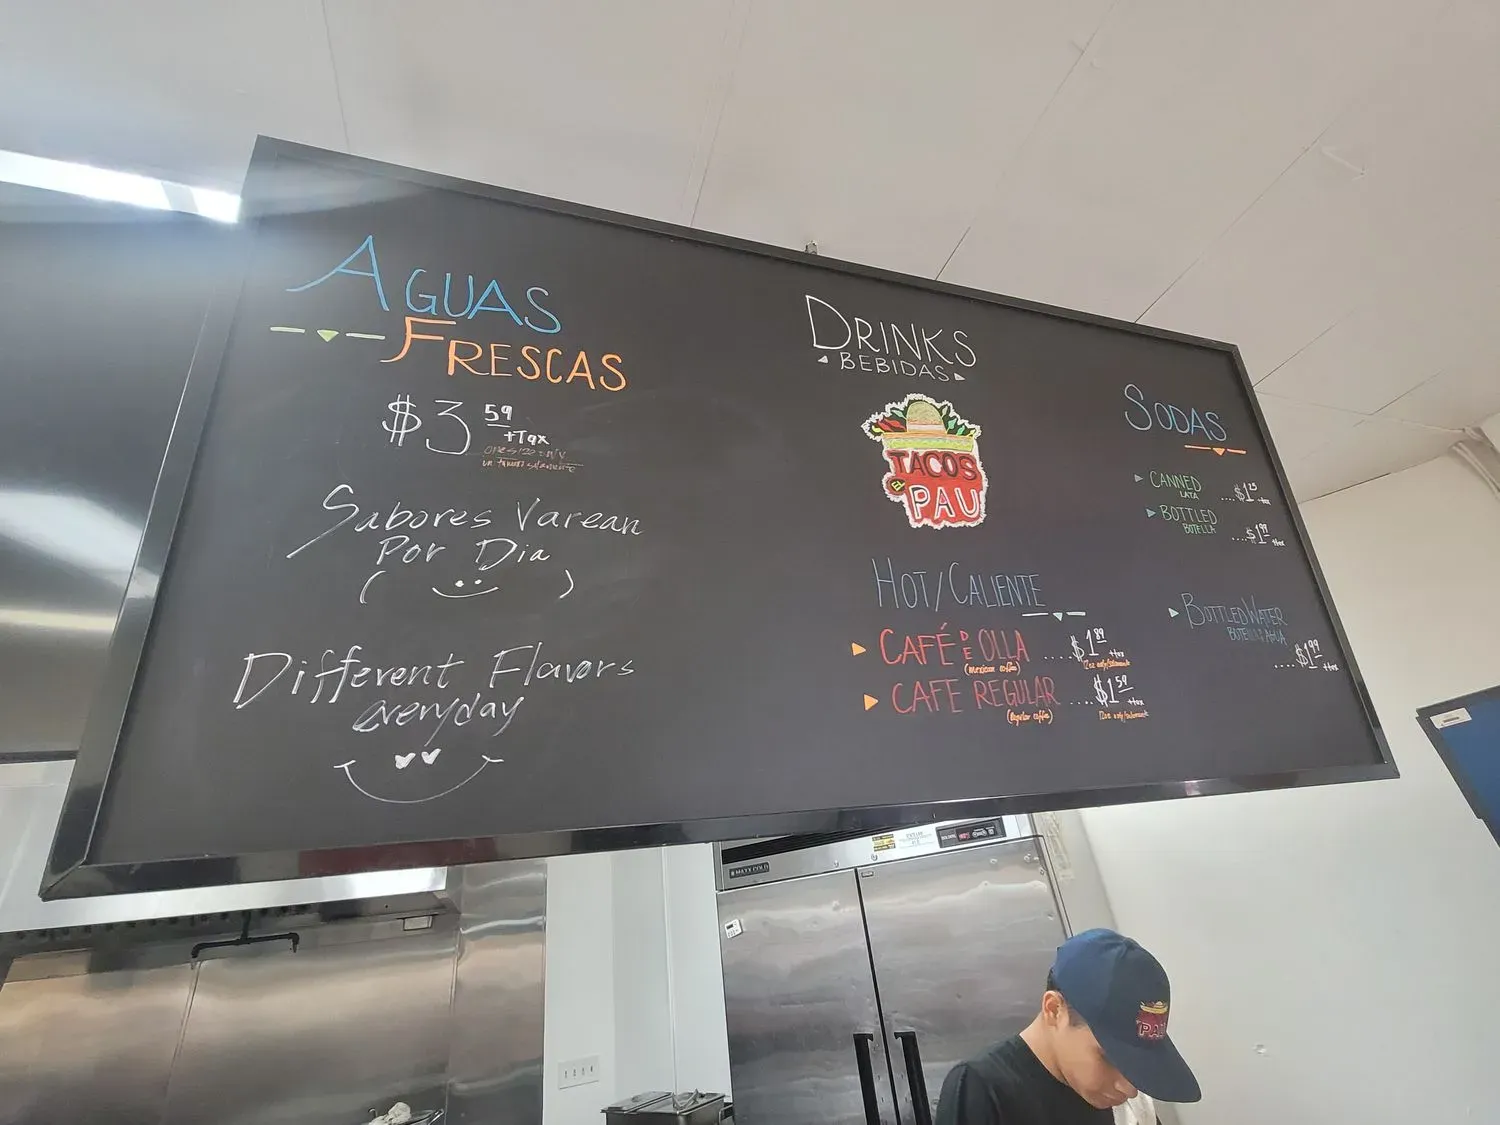 AGUAS
FRESCAS
$3.59
+Tax
one size only
un tamaño solamente
Sabores Varean
Por Dia
( )
Different Flavors
everyday
DRINKS
BEBIDAS
TACOS
EL
PAU
HOT/CALIENTE
CAFÉ DE OLLA .... $1.89 +tax
(mexican coffee) 12oz only/solamente
CAFE REGULAR .... $1.59 +tax
(Regular coffee) 12oz only/solamente
SODAS
CANNED .... $1.25 +tax
LATA
BOTTLED
BOTELLA
.... $1.99 +tax
BOTTLED WATER
BOTELLA AGUA
.... $1.99 +tax
MAXX COLD
PAU